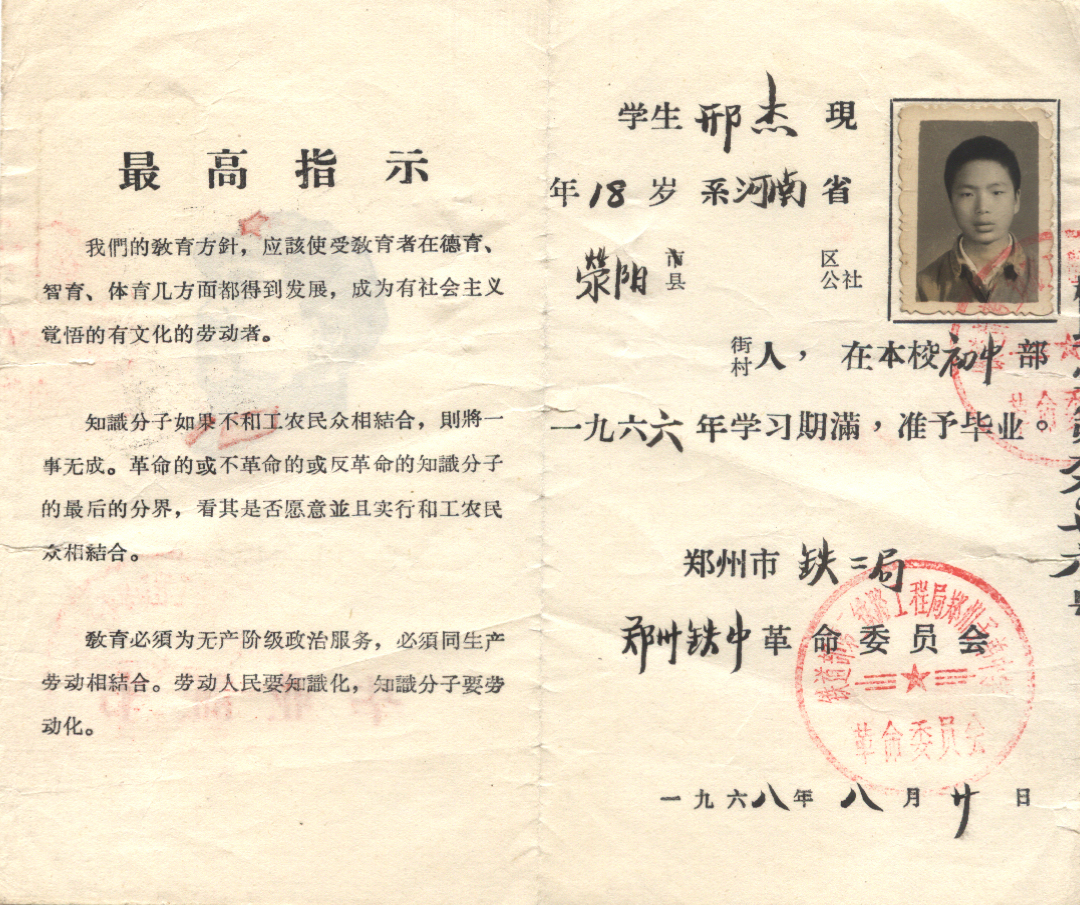 最高指示
我們的敎育方針，应該使受敎育者在德育、
智育、体育几方面都得到发展，成为有社会主义
覚悟的有文化的劳动者。
知識分子如果不和工农民众相結合，則將一
事无成。革命的或不革命的或反革命的知識分子
的最后的分界，看其是否愿意並且实行和工农民
众相結合。
敎育必須为无产阶级政治服务，必須同生产
劳动相結合。劳动人民要知識化，知識分子要劳
动化。
学生邢杰現
年18岁系河南省
荥阳市县 区公社
街村人，在本校初中部
一九六六年学习期滿，准予毕业。
郑州市铁二局
郑州铁中革命委员会
革命委员会
一九六八年八月廿日